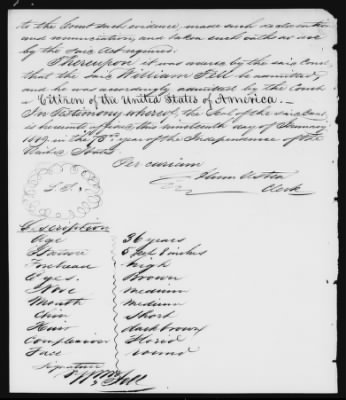 to the Court such evidence, made such declaration
and renunciation, and taken such oaths as are
by the said Act required.
Thereupon it was ordered by the said Court,
that the said William Fell be admitted,
and he was accordingly admitted by the Court
a Citizen of the United States of America.
In Testimony whereof, the Seal of the said Court
is hereunto affixed, this nineteenth day of January
1849, in the 73rd year of the Independence of the
United States
Per curiam
Clerk
L. S.
Description
Age 36 years
Stature 5 feet 8 inches
Forehead high
Eyes Brown
Nose medium
Mouth medium
Chin Short
Hair dark brown
Complexion Florid
Face round
Signature
Wm Fell